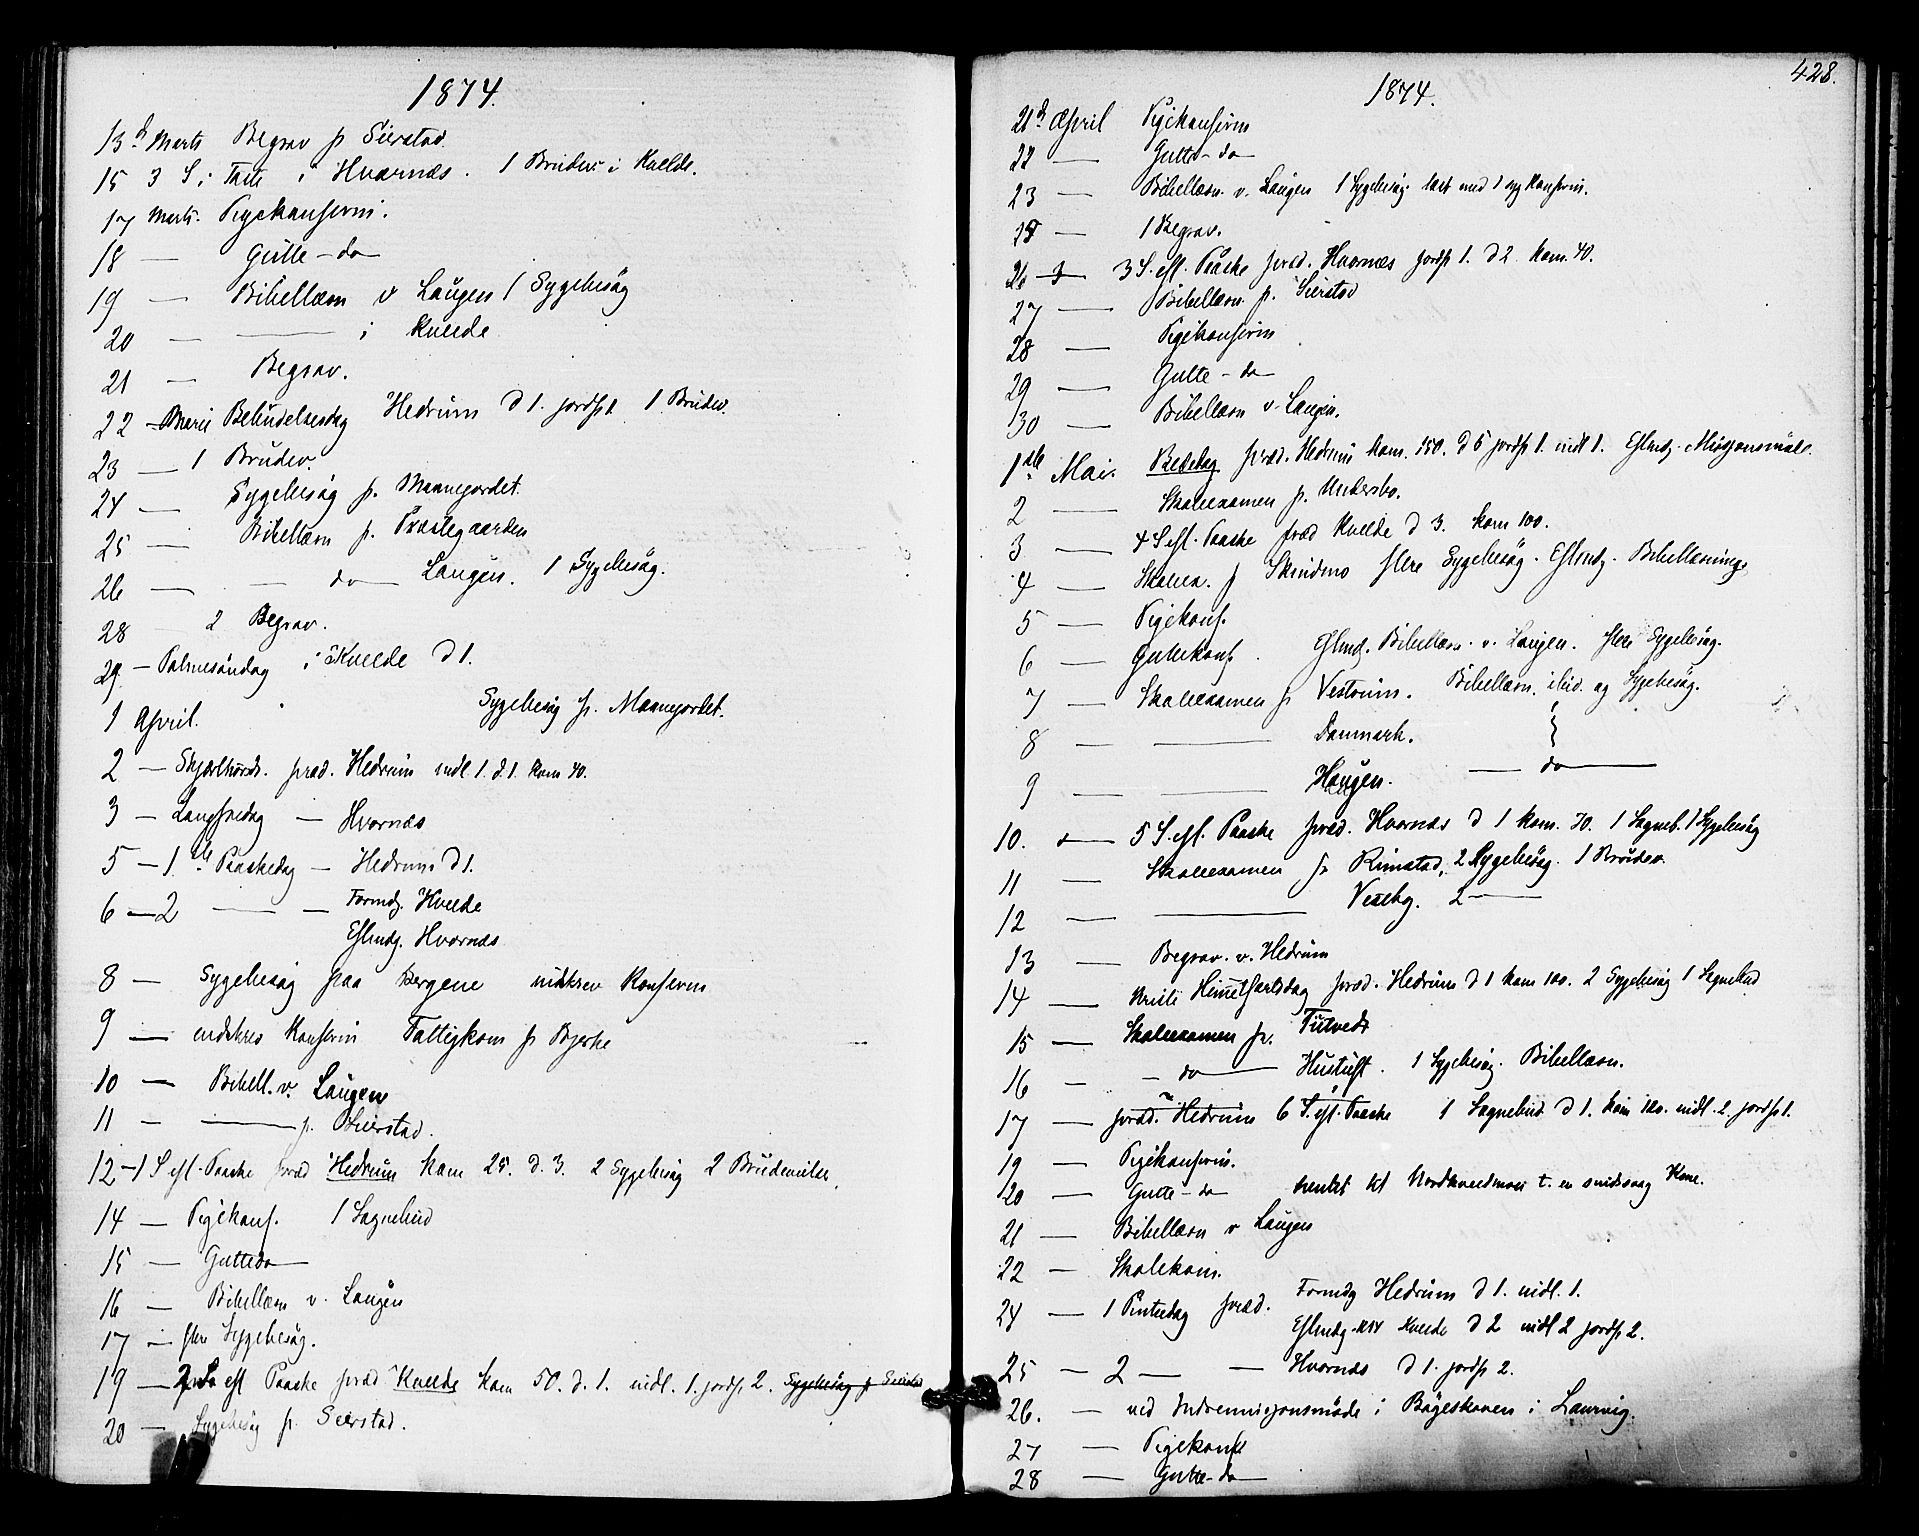 1874.
13d Marts Begrav p Sierstad.
15 3 S i Faste i Hvarnæs. 1 Brudev i Kvelde.
17 Marts. Pigekonfirm.
18 — Gutte-do
19 — Bibellæsn v Laugen 1 Sygebesøg
20 — — i Kvelde
21 — Begrav.
22 — Mariæ Bebudelsesdag Hedrum D 1. jordp 1. 1 Brudev.
23 — 1 Brudev.
24 — Sygebesøg p. Mannejordet.
25 — Bibellæsn p. Præstegaarden
26 — — do — Laugen. 1 Sygebesøg.
28 2 Begrav.
29 — Palmesøndag i Kvelde D 1.
1 April. Sygebesøg p. Mannejordet.
2 — Skjærthorsd. præd. Hedrum indl 1. d. 1. kom 40.
3 — Langfredag — Hvarnæs
5 — 1ste Paaskedag — Hedrum D 1.
6 — 2 — — Formdg. Kvelde
Eftmdg. Hvarnæs
8 — Sygebesøg paa Bergene indskrev Konfirm
9 — indskrev Konfirm Fattigkom p Bjerke
10 — Bibell. v. Laugen
11 — — p. Sierstad.
12 — 1 S eft. Paaske præd Hedrum kom 25. d. 3. 2 Sygebesøg 2 Brudevielse.
14 — Pigekonf. 1 Sognebud
15 — Guttedo
16 — Bibellæsn v. Laugen
17 — flere Sygebesøg.
19 — 2 S eft Paaske præd Kvelde kom 50. d. 1. indl. 1. jordp 2. Sygebesøg p Sierstad
20 — Sygebesøg p. Sierstad.
428.
1874.
21d April Pigekonfirm
22 — Gutte-do
23 — Bibellæsn. v. Laugen 1 Sygebesøg læst med 1 syg konfirm.
25 — 1 Begrav.
26 — 3 S. eft. Paaske præd. Hvarnæs jordp 1. d 2 kom. 40.
27 — Bibellæsn. p. Sierstad
28 — Pigekonfirm
29 — Gutte-do
30 — Bibellæsn v. Laugen.
1ste Mai. Bededag præd. Hedrum kom. 150. d 5 jordp 1. indl 1. Eftmdg. Missjonsmøde.
2 — Skoleexamen p. Undersbo.
3 — 4 S eft. Paaske præd Kvelde d 3. kom 100.
4 — Skoleex. p Skindmo flere Sygebesøg. Eftmdg. Bibellæsning
5 — Pigekonf.
6 — Guttekonf. Eftmdg. Bibellæsn. v. Laugen. flere Sygebesøg.
7 — Skoleexamen p Vestrum. Bibellæsn. ibid. og Sygebesøg.
8 — — Danmark.
9 — — Haugen. — do —
10. — 5 S. eft. Paaske præd. Hvarnæs d 1 kom. 70. 1 Sogneb. 1 Sygebesøg
11 — Skoleexamen p. Rimstad, 2 Sygebesøg. 1 Brudev.
12 — — Vestby. 2 —
13 — Begrav. v. Hedrum
14 — Kristi Himmelfartsdag præd. Hedrum d 1 kom 100. 2 Sygebesøg 1 Sognebud
15 — Skoleexamen p. Tutvedt
16 — — do — Hustuft. 1 Sygebesøg. Bibellæsn.
17 — præd. Hedrum 6 S. eft. Paaske 1 Sognebud d 1. kom 120. indl. 2. jordp 1.
19 — Pigekonfirm.
20 — Gutte-do hentet til Nordkveldmoen t. en sindssvag Kone.
21 — Bibellæsn v Laugen
22 — Skolekom.
24 — 1 Pintsedag præd. Formdg Hedrum d 1. indl. 1.
Eftmdg Kvelde d 2 indl 2 jordp 2.
25 — 2 — — Hvarnæs d 1. jordp 2.
26. — ved Indremissjonsmøde i Bøgeskoven i Laurvig.
27 — Pigekonf
28 — Gutte-do